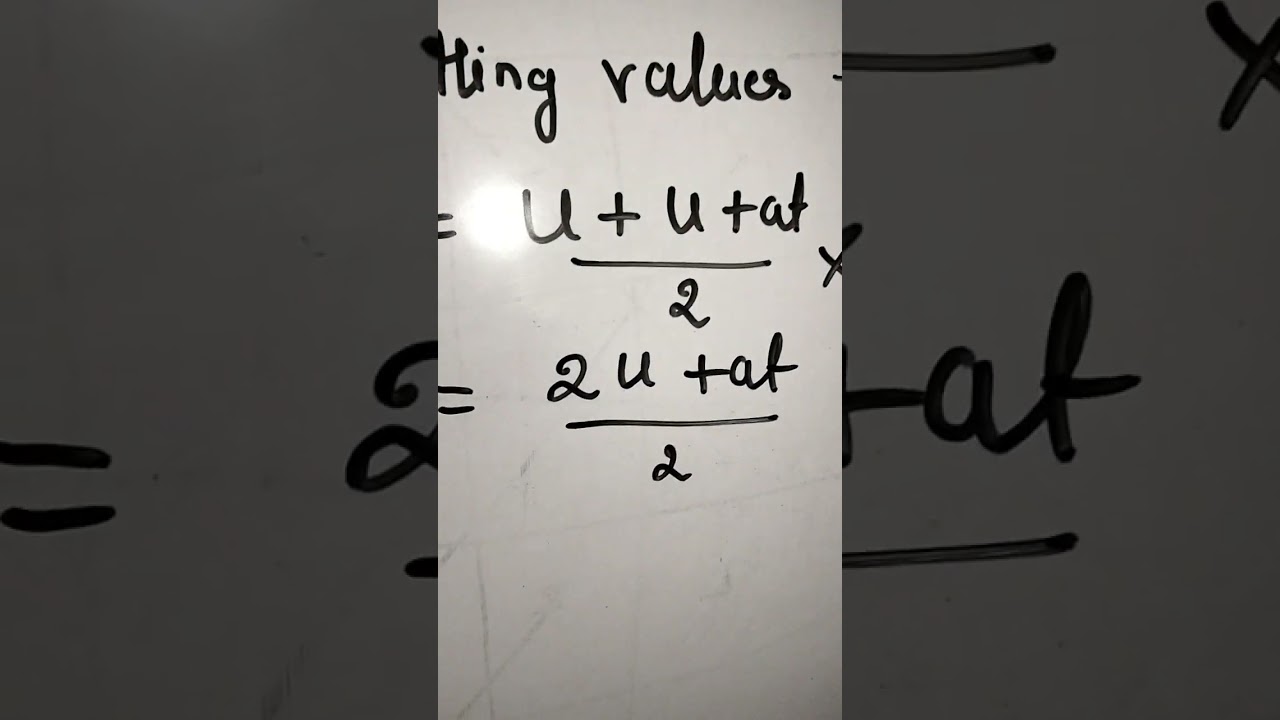 tting values
= u + u + at ×
2
= 2u + at
2